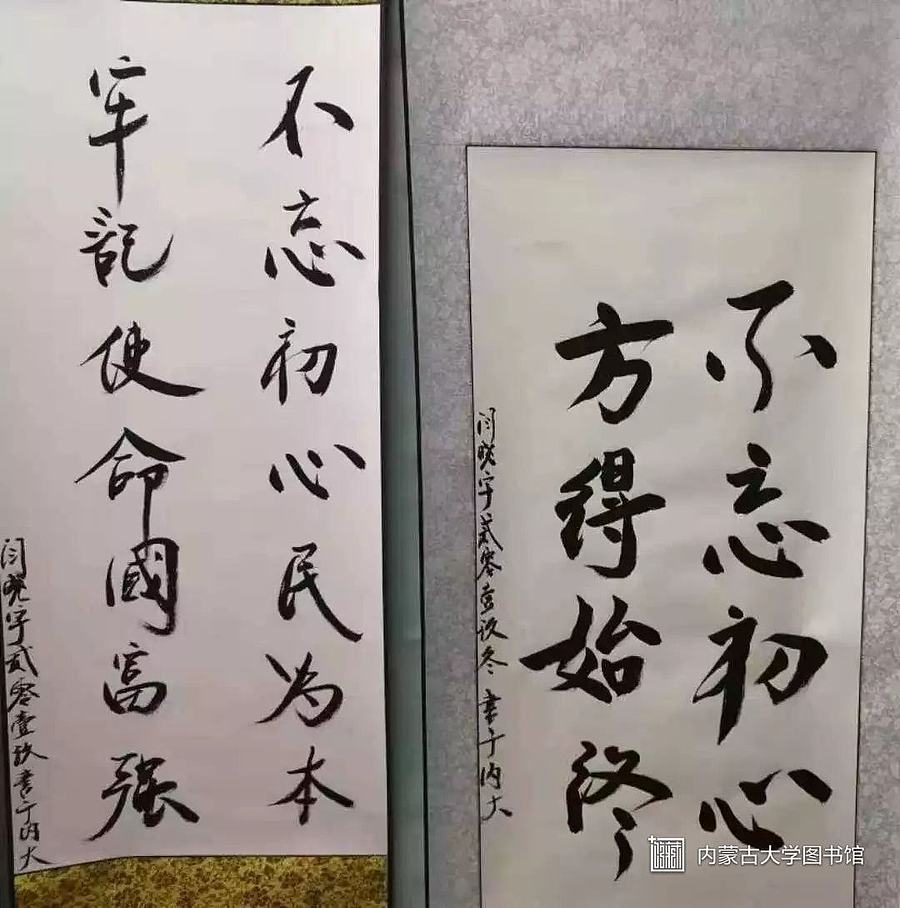 不忘初心民为本
牢記使命國富强
闫晓宇贰零壹玖書于内大
不忘初心
方得始终
闫晓宇贰零壹玖冬書于内大
内蒙古大学图书馆